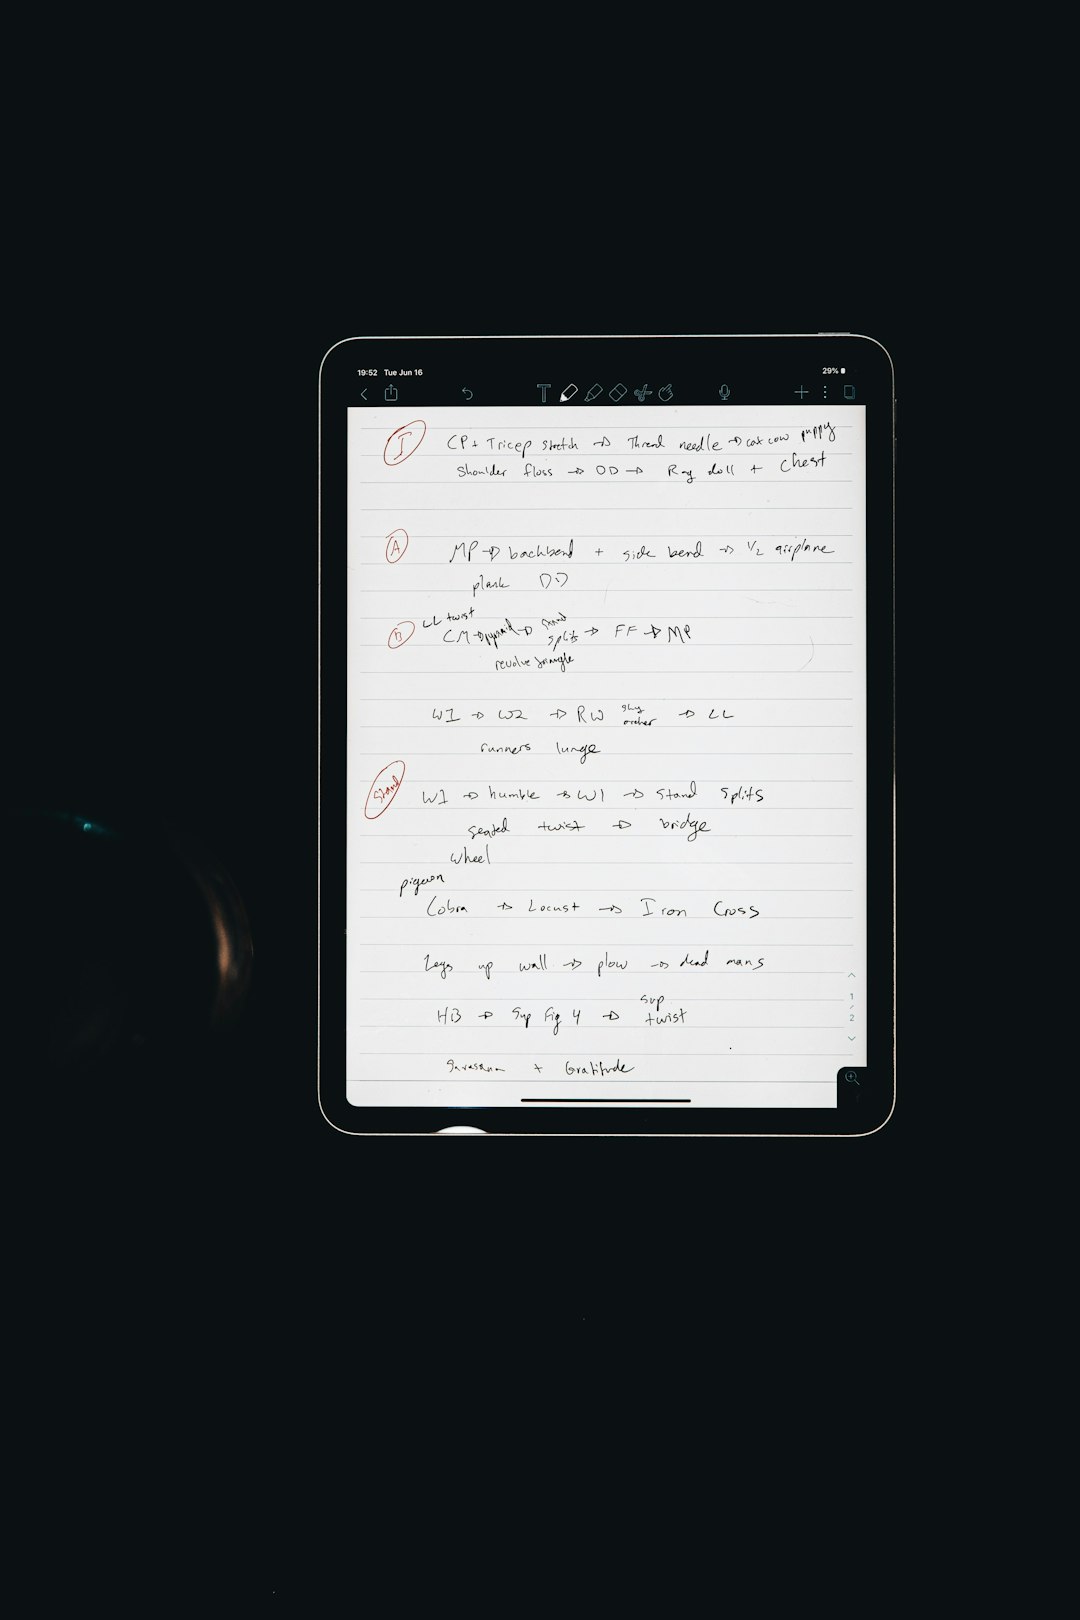 19:52 Tue Jun 16 29%
I CP + Tricep stretch → Thread needle → cat cow puppy
Shoulder floss → DD → Rag doll + chest
A MP → backbend + side bend → 1/2 airplane
plank DD
LL twist
B CM → pyramid → stand splits → FF → MP
revolve triangle
W1 → W2 → RW sky archer → LL
runners lunge
Stand W1 → humble → W1 → stand splits
seated twist → bridge
wheel
pigeon
Cobra → Locust → Iron Cross
Legs up wall → plow → dead mans
HB → Sup Fig 4 → sup twist
Savasana + Gratitude
1
2